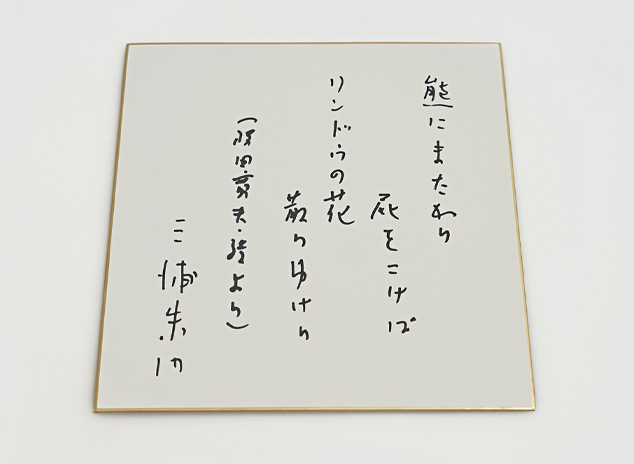 熊にまたかり
屁をこけば
リンドウの花
散りゆけり
(阪田寛夫・より)
三浦朱门